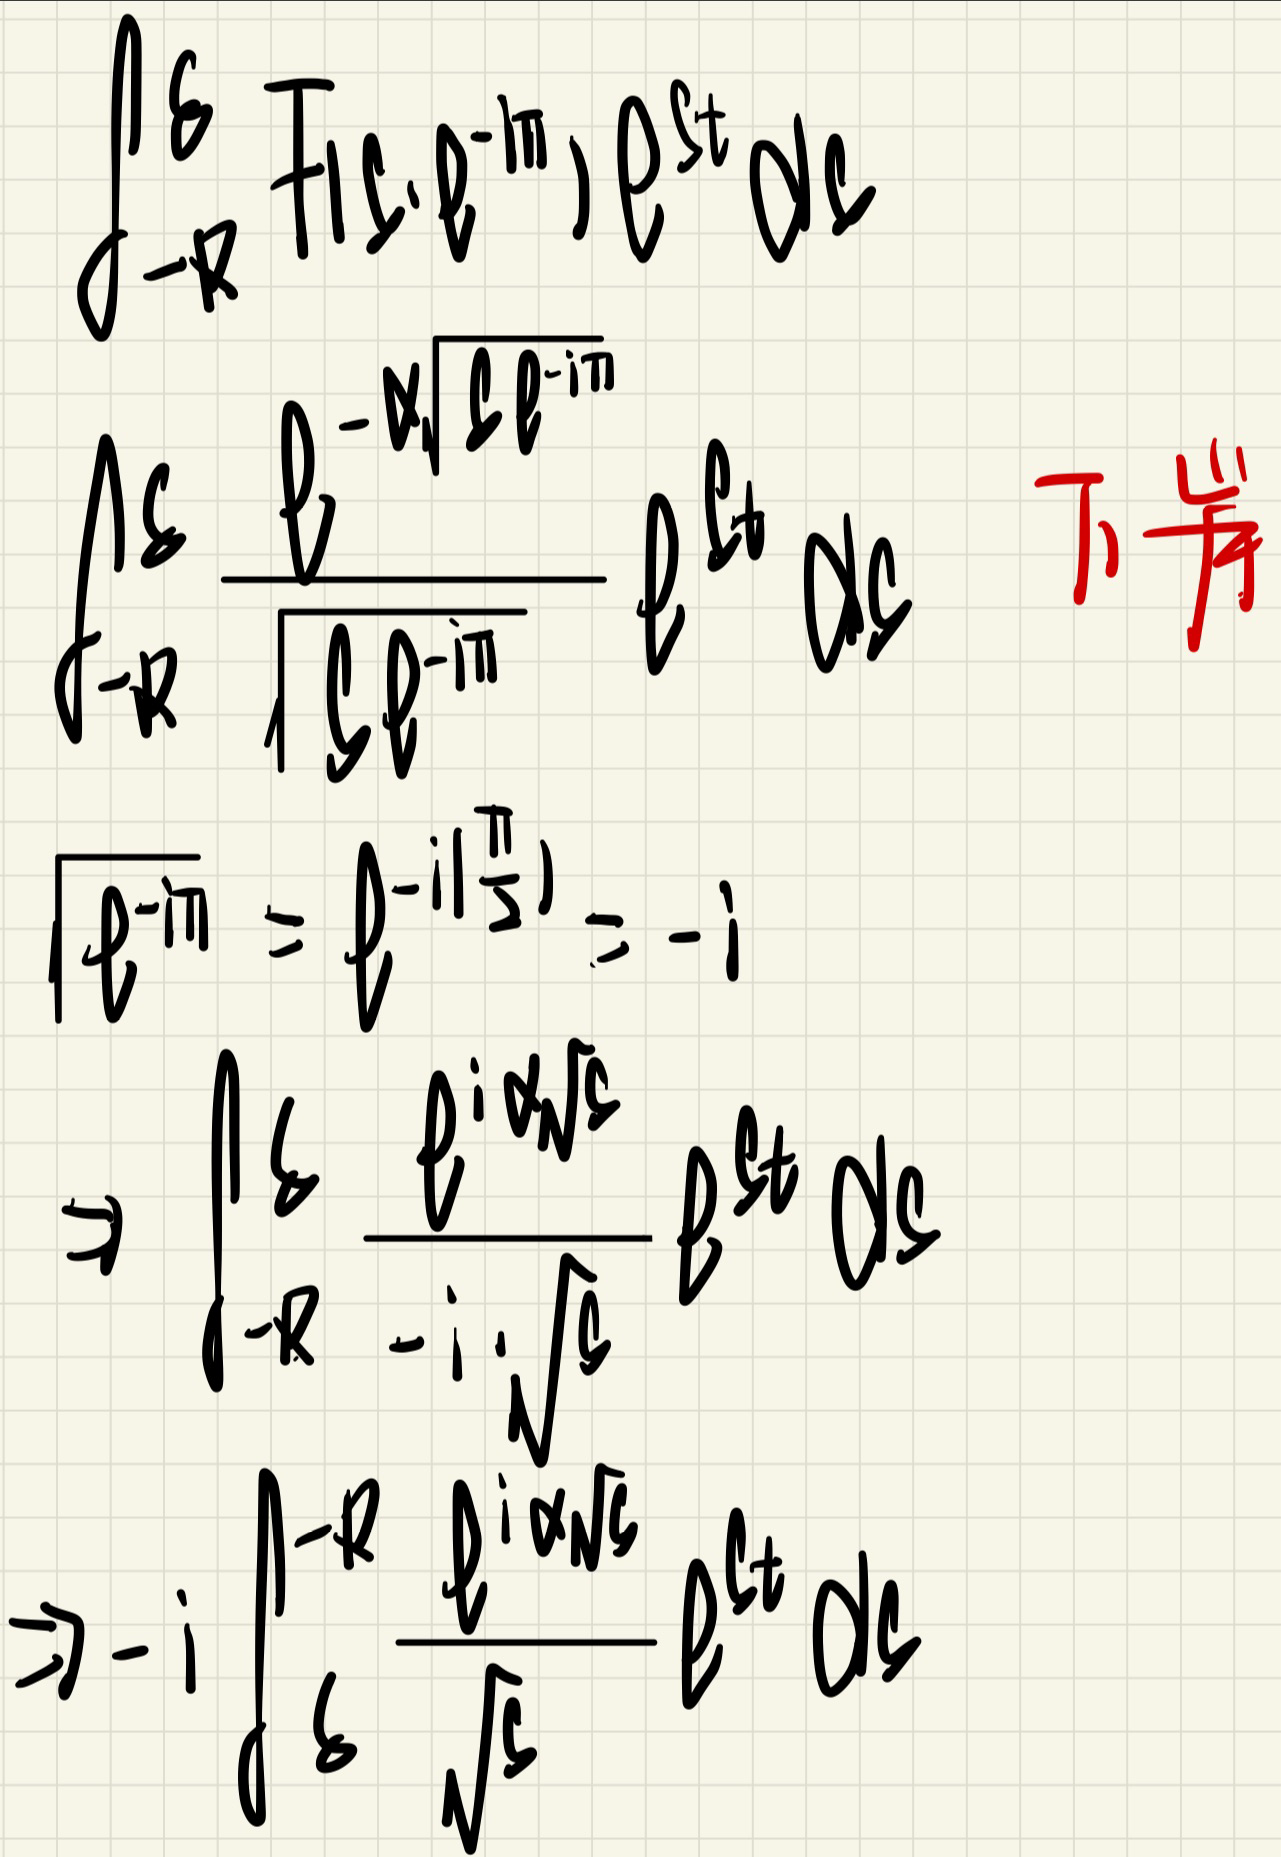 ∫_{-R}^{ε} F(s·e^{-iπ}) e^{st} ds
∫_{-R}^{ε} \frac{e^{-α\sqrt{s e^{-iπ}}}}{\sqrt{s e^{-iπ}}} e^{st} ds 下岸
\sqrt{e^{-iπ}} = e^{-i(\frac{π}{2})} = -i
⇒ ∫_{-R}^{ε} \frac{e^{iα\sqrt{s}}}{-i·\sqrt{s}} e^{st} ds
⇒ -i ∫_{ε}^{-R} \frac{e^{iα\sqrt{s}}}{\sqrt{s}} e^{st} ds